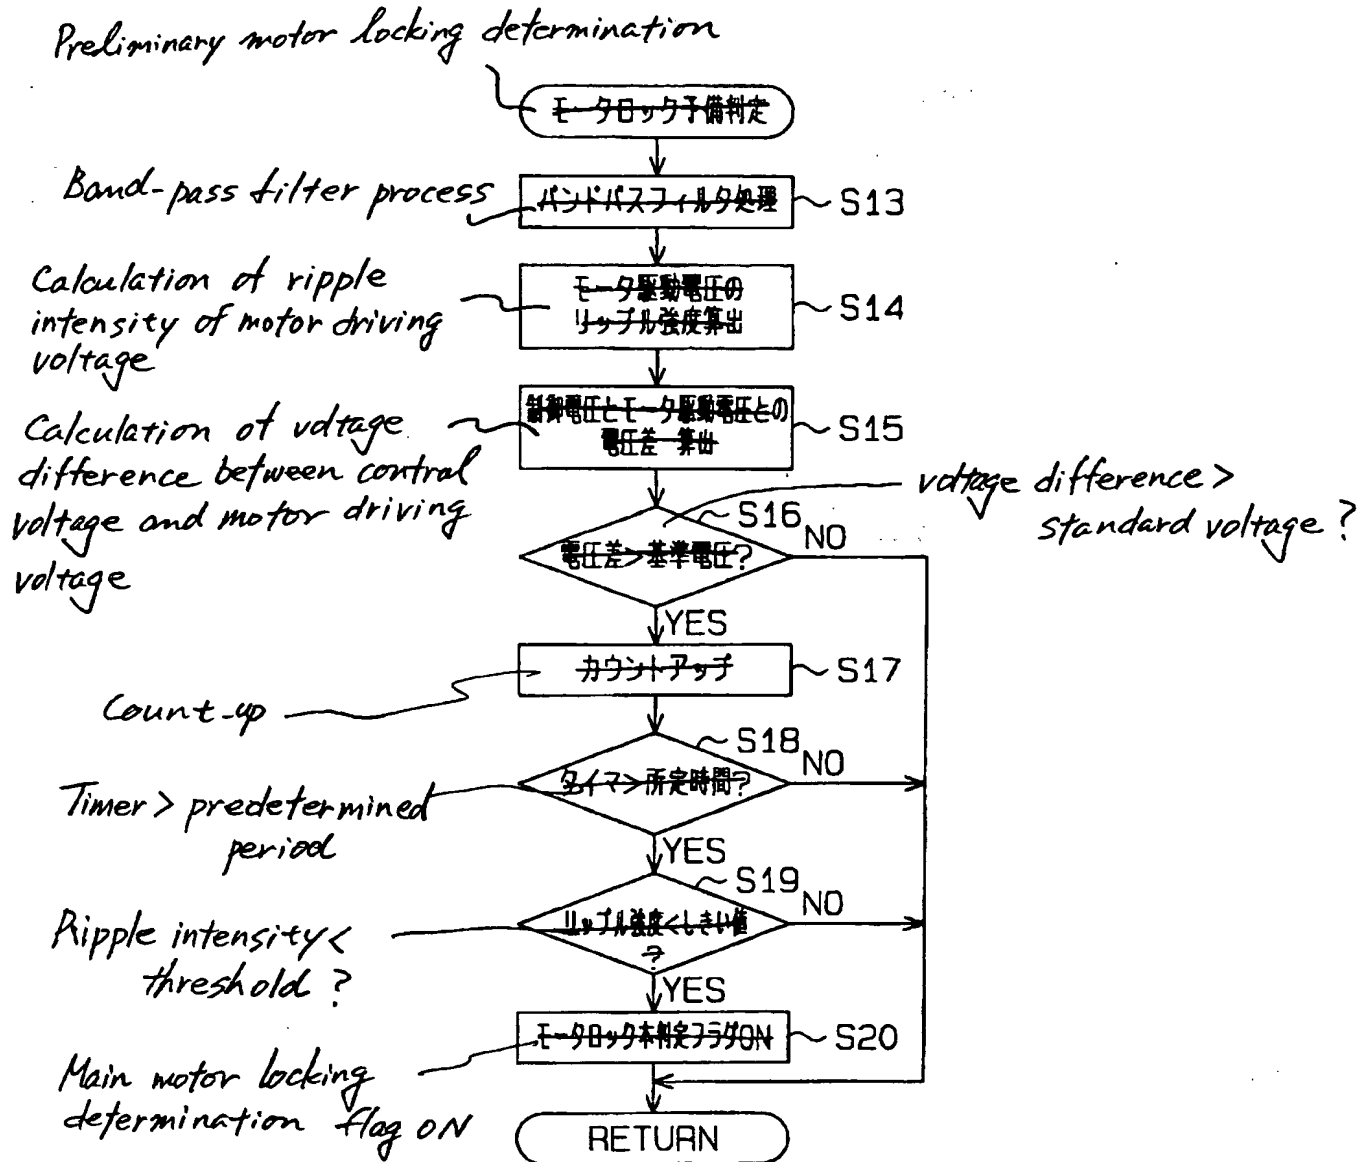 Preliminary motor locking determination
モータロック予備判定
Band-pass filter process
バンドパスフィルタ処理
S13
Calculation of ripple
intensity of motor driving
voltage
モータ駆動電圧の
リップル強度算出
S14
Calculation of voltage
difference between control
voltage and motor driving
voltage
制御電圧とモータ駆動電圧との
電圧差 算出
S15
voltage difference >
standard voltage ?
S16
電圧差>基準電圧?
NO
YES
カウントアップ
S17
Count-up
S18
タイマ>所定時間?
NO
Timer > predetermined
period
YES
S19
リップル強度<しきい値
?
NO
Ripple intensity <
threshold ?
YES
モータロック本判定フラグON
S20
Main motor locking
determination flag ON
RETURN